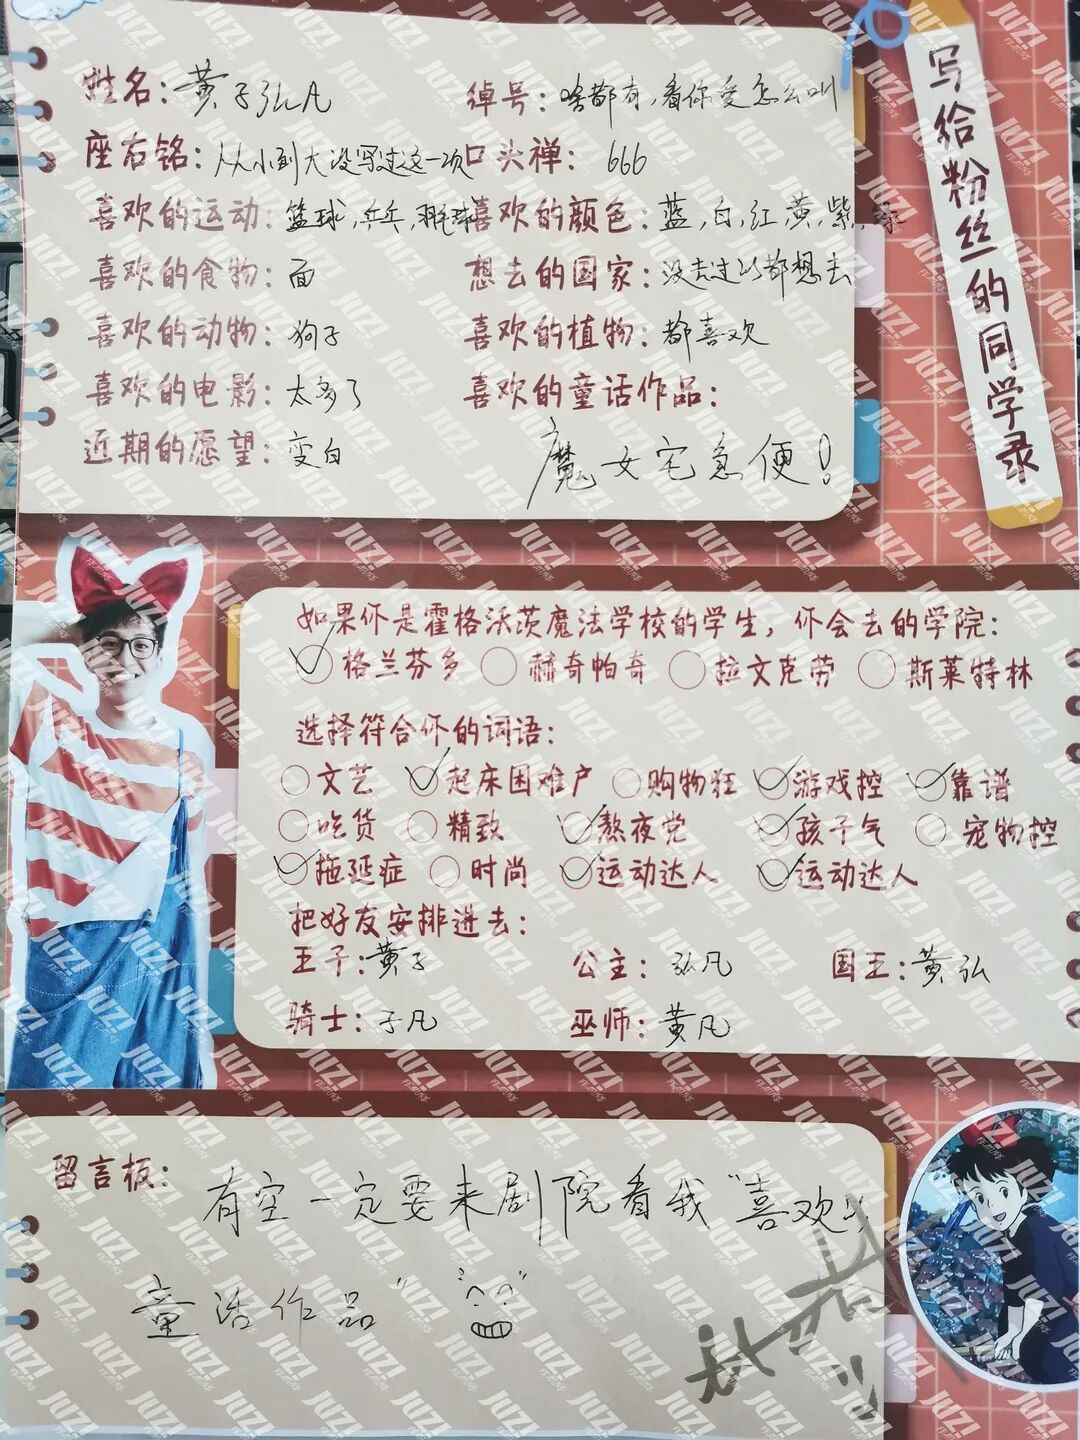 写给粉丝的同学录
姓名：黄子弘凡 绰号：啥都有，看你爱怎么叫
座右铭：从小到大没写过这一项 口头禅：666
喜欢的运动：篮球，乒乓，羽毛球 喜欢的颜色：蓝，白，红，黄，紫，
喜欢的食物：面 想去的国家：没去过的都想去
喜欢的动物：狗子 喜欢的植物：都喜欢
喜欢的电影：太多了 喜欢的童话作品：
近期的愿望：变白 魔女宅急便！
如果你是霍格沃茨魔法学校的学生，你会去的学院：
格兰芬多 赫奇帕奇 拉文克劳 斯莱特林
选择符合你的词语：
文艺 起床困难户 购物狂 游戏控 靠谱
吃货 精致 熬夜党 孩子气 宠物控
拖延症 时尚 运动达人 运动达人
把好友安排进去：
王子：黄子 公主：弘凡 国王：黄弘
骑士：子凡 巫师：黄凡
留言板：有空一定要来剧院看我“喜欢的
童话作品”
JUZI FEATURE